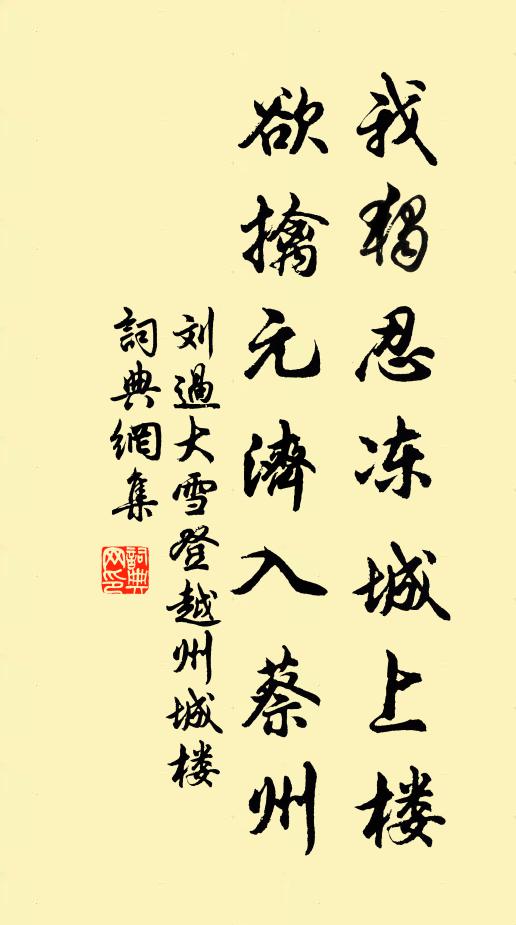 我獨忍冻城上楼
欲擒元濟入蔡州
刘過大雪登越州城楼
詞典網集
詞典網印